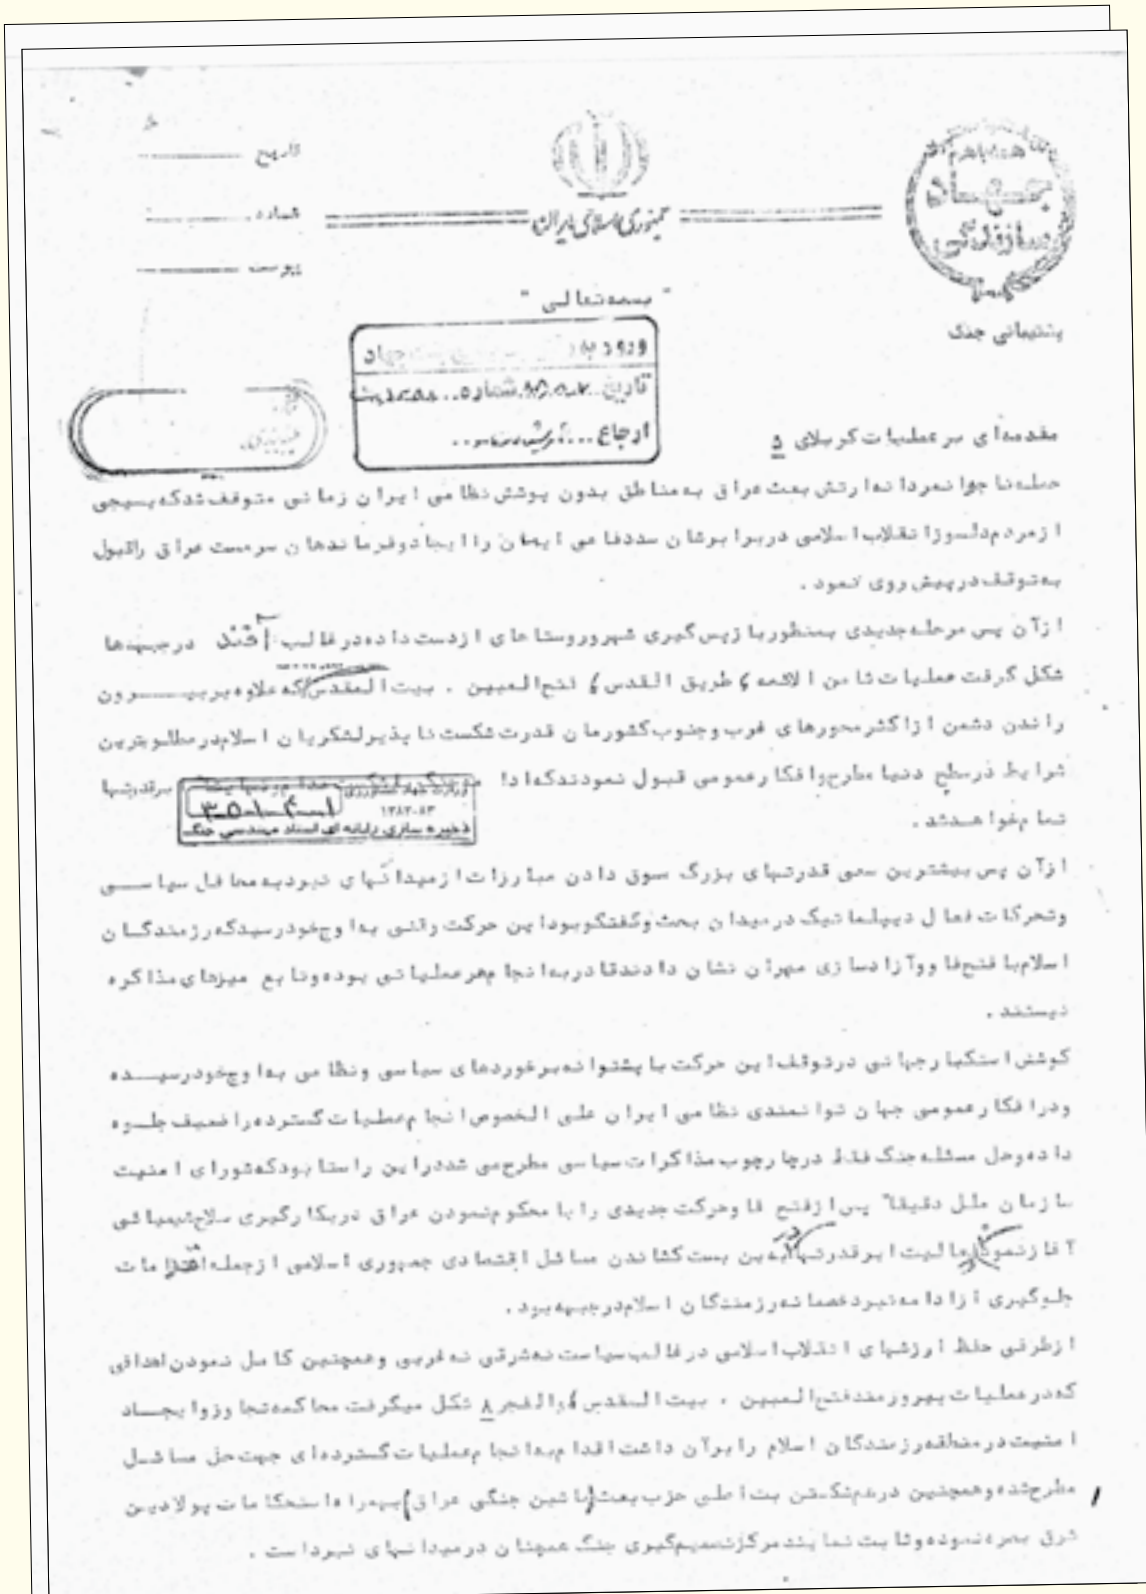 همه با هم
جهاد
سازندگی
جمهوری اسلامی ایران
تاریخ
شماره
پیوست
پشتیبانی جنگ
" بسمه تعالی "
ورود به جهاد
تاریخ شماره
ارجاع
مقدمه‌ای بر عملیات کربلای ۵
حمله ناجوانمردانه ارتش بعث عراق به مناطق بدون پوشش نظامی ایران زمانی متوقف شد که بسیجی
از مردم دلسوز انقلاب اسلامی در برابرشان سد دفاعی ایمان را ایجاد و فرماندهان سرمست عراق را قبول
به توقف در پیش روی نمود .
از آن پس مرحله جدیدی بمنظور بازپس گیری شهر و روستاهای از دست داده در غالب آفند در جبهه‌ها
شکل گرفت عملیات ثامن الائمه ، طریق القدس ، فتح المبین . بیت المقدس که علاوه بر بیرون
راندن دشمن از اکثر محورهای غرب و جنوب کشورمان قدرت شکست ناپذیر لشکریان اسلام در مطلوبترین
شرایط در سطح دنیا مطرح و افکار عمومی قبول نمودند که ادا
تمام خواهد شد .
وزارت جهاد کشاورزی
۱۳۸۲-۸۳
ذخیره سازی رایانه ای اسناد مهندسی جنگ
از آن پس بیشترین سعی قدرتهای بزرگ سوق دادن مبارزات از میدانهای نبرد به محافل سیاسی
و تحرکات فعال دیپلماتیک در میدان بحث و گفتگو بود این حرکت وقتی به اوج خود رسید که رزمندگان
اسلام با فتح فاو و آزادسازی مهران نشان دادند قادر به انجام هر عملیاتی بوده و تابع میزهای مذاکره
نیستند .
کوشش استکبار جهانی در توقف این حرکت با پشتوانه برخوردهای سیاسی و نظامی به اوج خود رسیده
و در افکار عمومی جهان توانمندی نظامی ایران علی الخصوص انجام عملیات گسترده را ضعیف جلوه
داده و حل مسئله جنگ فقط در چارچوب مذاکرات سیاسی مطرح می شد در این راستا بود که شورای امنیت
سازمان ملل دقیقا" پس از فتح فاو حرکت جدیدی را با محکوم نمودن عراق در بکارگیری سلاح شیمیائی
آغاز نمود فعالیت ابرقدرتها در به بن بست کشاندن مسائل اقتصادی جمهوری اسلامی از جمله اقدامات
جلوگیری از ادامه نبرد خصمانه رزمندگان اسلام در جبهه بود .
از طرفی حفظ ارزشهای انقلاب اسلامی در غالب سیاست نه شرقی نه غربی و همچنین کامل نمودن اهدافی
که در عملیات پیروزمند فتح المبین . بیت المقدس ، والفجر ۸ شکل میگرفت محاکمه تجاوز و ایجاد
امنیت در منطقه رزمندگان اسلام را برآن داشت اقدام به انجام عملیات گسترده‌ای جهت حل مسائل
مطرح شده و همچنین درهم شکستن بت اصلی حزب بعث (ماشین جنگی عراق) بهمراه استحکامات پولادین
شرق بصره نموده و ثابت نمایند مرکز تصمیم گیری جنگ همچنان در میدانهای نبرد است .